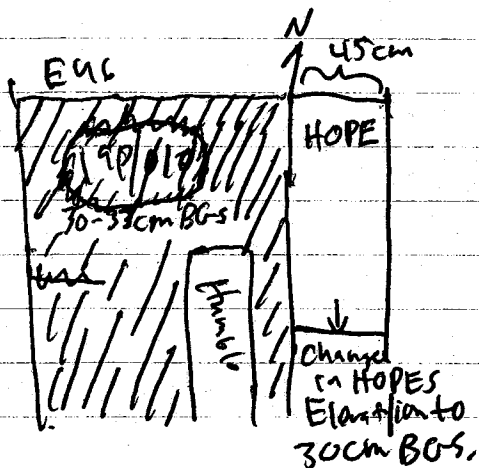 N
45cm
E96
HOPE
30-33cm BGS
Humble
Change
in HOPES
Elevation to
30cm BGS.